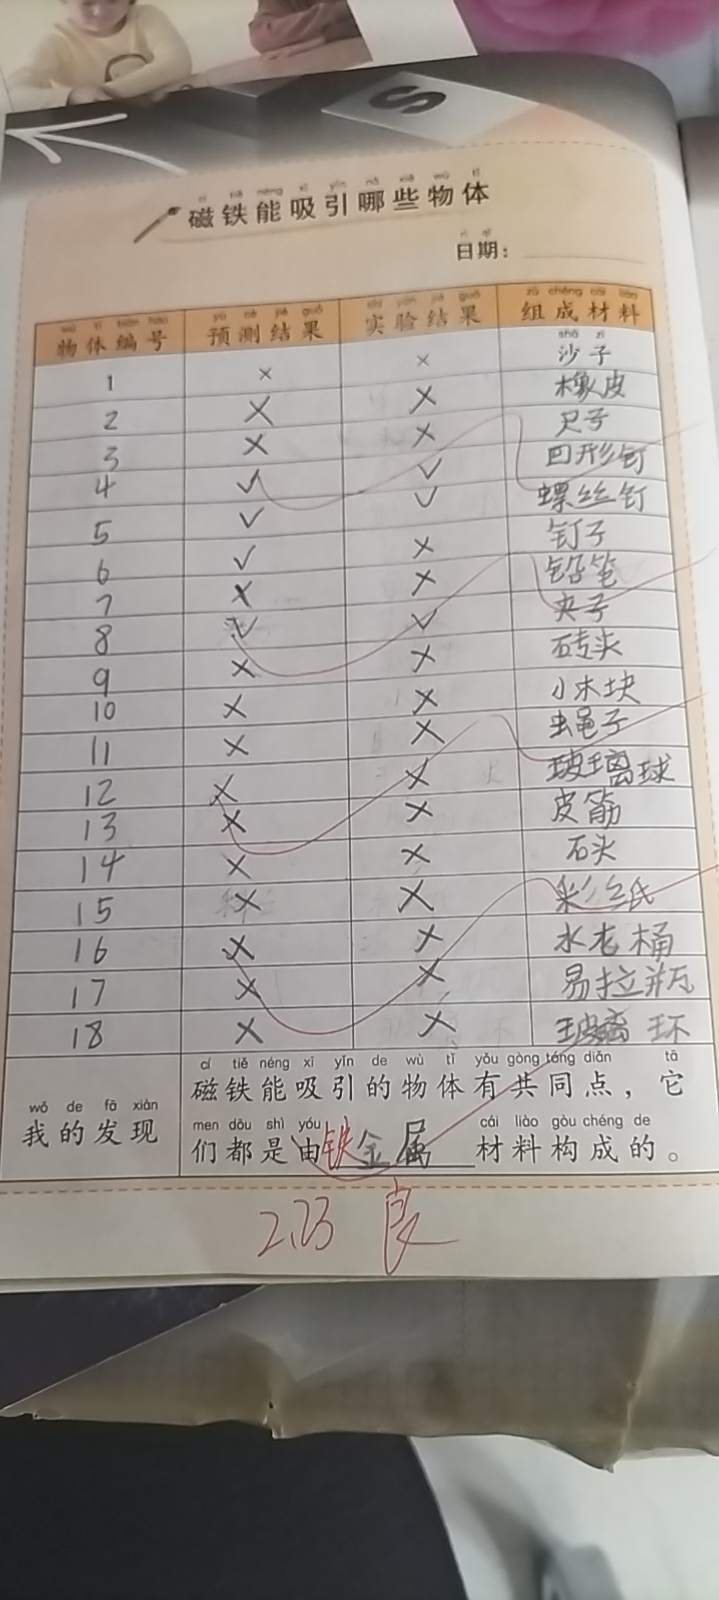 S
cí tiě néng xī yǐn nǎ xiē wù tǐ
磁铁能吸引哪些物体
rì qī
日期：
wù tǐ biān hào yù cè jié guǒ shí yàn jié guǒ zǔ chéng cái liào
物体编号 预测结果 实验结果 组成材料
shā zi
1 × × 沙子
2 × × 橡皮
3 × × 尺子
4 ✓ ✓ 回形钉
5 ✓ ✓ 螺丝钉
6 ✓ × 钉子
7 × × 铅笔
8 ✓ ✓ 夹子
9 × × 砖夹
10 × × 小木块
11 × × 虫绳子
12 × × 玻璃球
13 × × 皮筋
14 × × 石头
15 × × 彩纸
16 × × 水老桶
17 × × 易拉瓶
18 × × 环
cí tiě néng xī yǐn de wù tǐ yǒu gòng tóng diǎn tā
磁铁能吸引的物体有共同点，它
wǒ de fā xiàn
我的发现
men dōu shì yóu cái liào gòu chéng de
们都是由铁金属材料构成的。
2.23 良